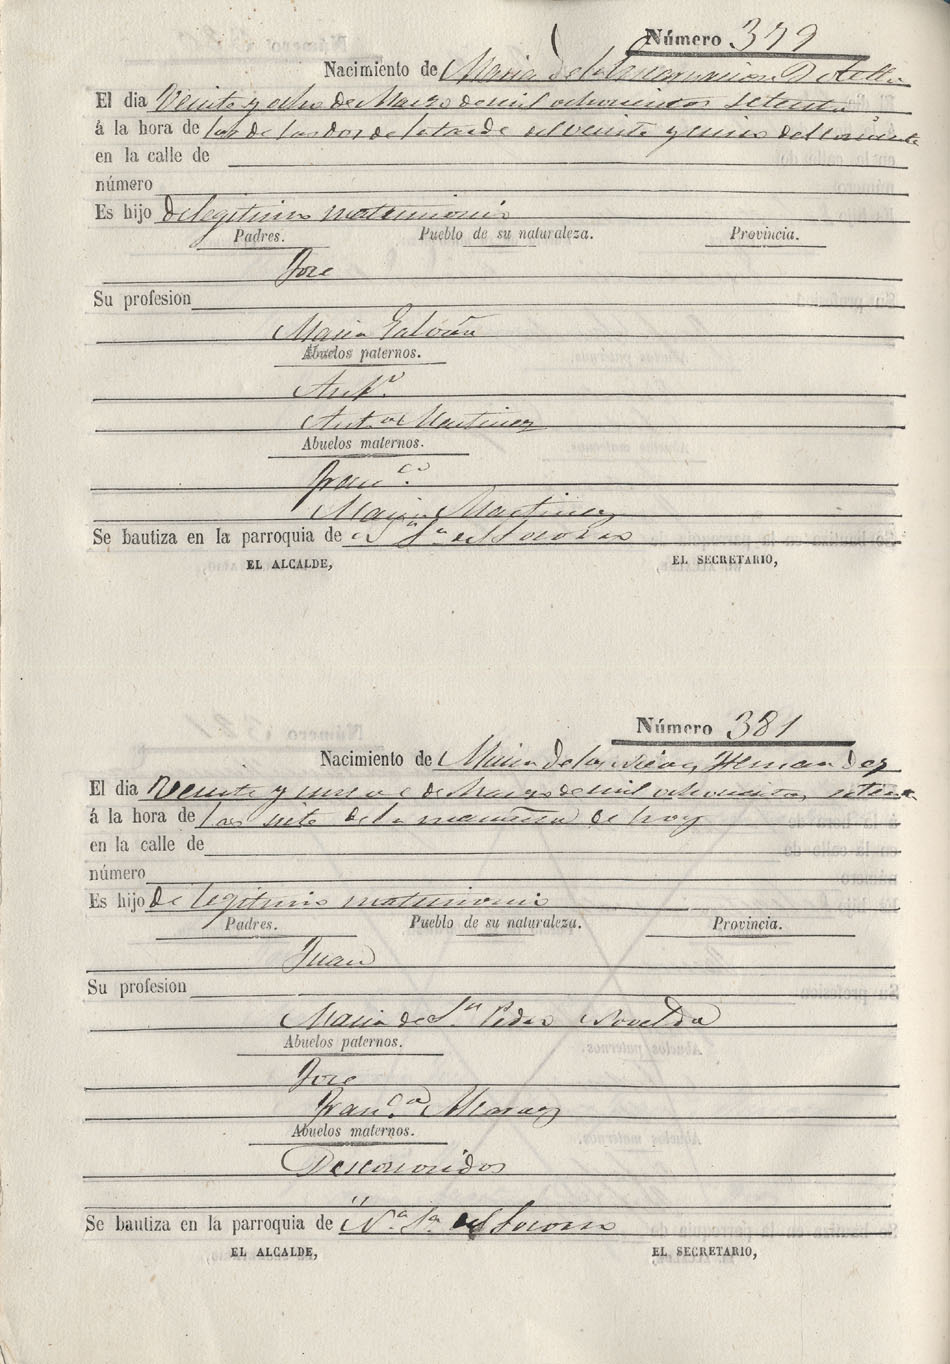 Número 379
Nacimiento de Maria de la Encarnacion Botella
El dia Veinte y ocho de Marzo de mil ochocientos setenta
á la hora de las dos de la tarde del veinte y cinco del corriente
en la calle de
número
Es hijo de legitimo matrimonio
Padres. Pueblo de su naturaleza. Provincia.
Jose
Su profesion
Maria Galvañ
Abuelos paternos.
Antº
Antª Martinez
Abuelos maternos.
Francº
Maria Martinez
Se bautiza en la parroquia de Nª Sª del Socorro
EL ALCALDE, EL SECRETARIO,
Número 381
Nacimiento de Maria de las Nieves Hernandez
El dia Veinte y nueve de Marzo de mil ochocientos setenta
á la hora de las siete de la mañana de hoy
en la calle de
número
Es hijo de legitimo matrimonio
Padres. Pueblo de su naturaleza. Provincia.
Juan
Su profesion
Maria de Sn Pedro Novelda
Abuelos paternos.
Jose
Francª
Abuelos maternos.
Desconocidos
Se bautiza en la parroquia de Nª Sª del Socorro
EL ALCALDE, EL SECRETARIO,